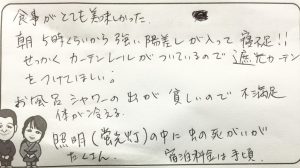 食事がとても美味しかった.
朝5時くらいから強い陽差しが入って寝不足!!
せっかくカーテンレールがついているので遮光カーテン
をつけてほしい.
お風呂シャワーの出が貧しいので不満足
体が冷える.
照明(蛍光灯)の中に虫の死がいが
たくさん. 宿泊料金は手頃